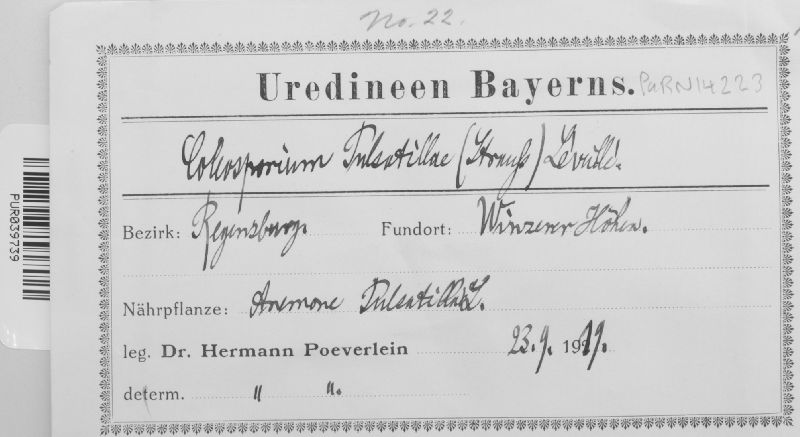 No. 22.
Uredineen Bayerns. PURN14223
Coleosporium Pulsatillae (Strauß) Léveillé.
Bezirk: Regensburg. Fundort: Winzerer Höhen.
Nährpflanze: Anemone Pulsatilla L.
leg. Dr. Hermann Poeverlein 23. 9. 19
determ. " ".
PUR039739